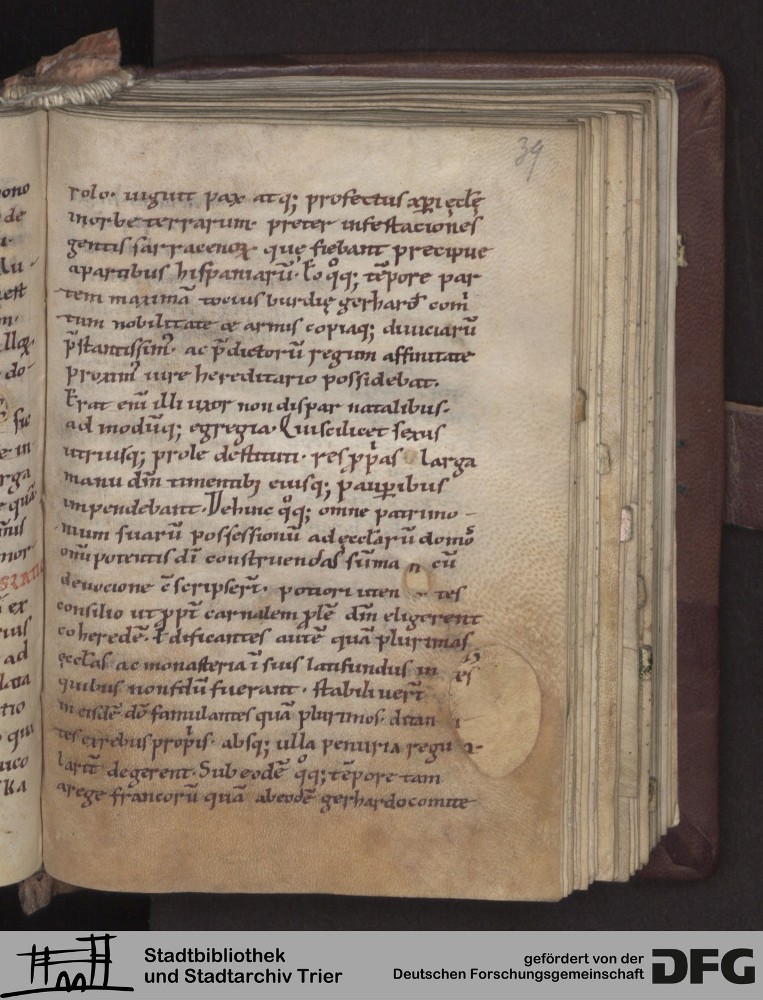 39
rolo. uiguit pax atq; profectus xp̄i ęcłę
in orbe terrarum. preter infestacionęs
gentis sarracenoꝝ quę fiebant precipue
a partibus hispaniarū. Eo q̊q; tēpore par
tem maximā tocius burdię gerhard᾽ com̄
tum nobilitate & armis copiaq; diuiciarū
p̄stantissim᾽ ac p̄dictorū regum affinitate
proxim᾽ iure hereditario possidebat.
Erat eni᷑ illi uxor non dispar natalibus.
ad modūq; egregia. Qui scilicet sexus
utriusq; prole destituti. res ꝓprias larga
manu dn̄m timentibꝫ eiusq; pauꝑibus
impendebant. Dehinc q̊q; omne patrimo-
nium suarū possessionū ad ęcclarū domo᷒
omīpotentis dī construendas sūma cū
deuocione c̄scripser̄t. potiori uten tes
consilio ut ꝓpt̄ carnalem ꝓlē dn̄m eligerent
coheredē. Edificantes autē quā plurimas
ęccłas ac monasteria ī suis latifundiis in
quibus nonsdū fuerant. stabiliuer̄t es
in eisdē dō famulantes quā plurimos. ditan
tes ex rebus propriis. absq; ulla penuria regu a-
larit̄ degerent. Sub eodē q̊q; tēpore tam
a rege francorū quā ab eodē gerhardo comite
Stadtbibliothek
und Stadtarchiv Trier
gefördert von der
Deutschen Forschungsgemeinschaft
DFG